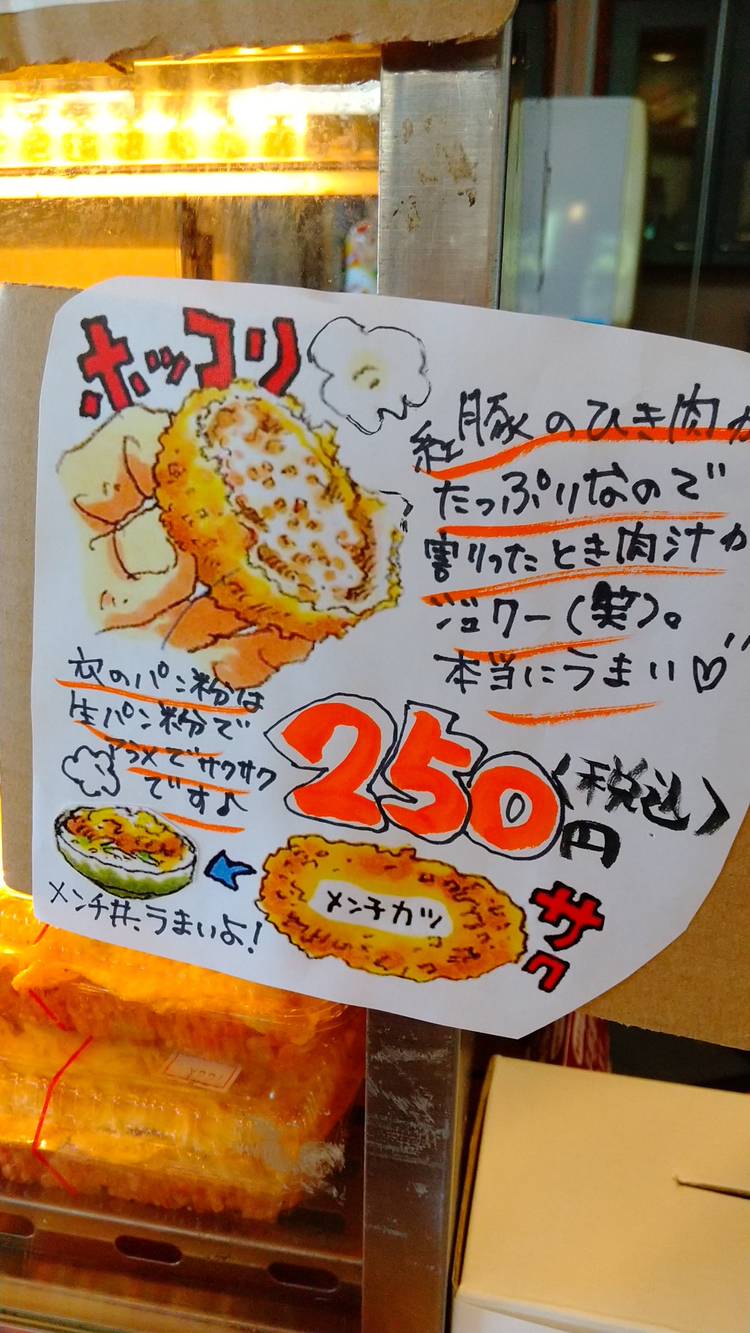 ホッコリ
紅豚のひき肉が
たっぷりなので
割ったとき肉汁が
ジュワー(笑)。
本当にうまい♡
衣のパン粉は
生パン粉で
アラメでサクサク
です♪
250円(税込)
メンチカツ
サク
メンチ丼、うまいよ!